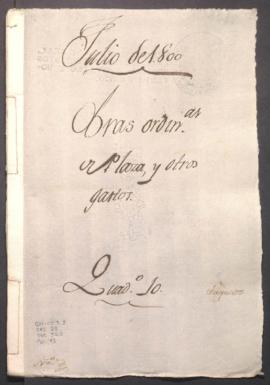 Julio de 1800
Obras ordin.as
de Plaza, y otros
gastos.
Quad.o 10.